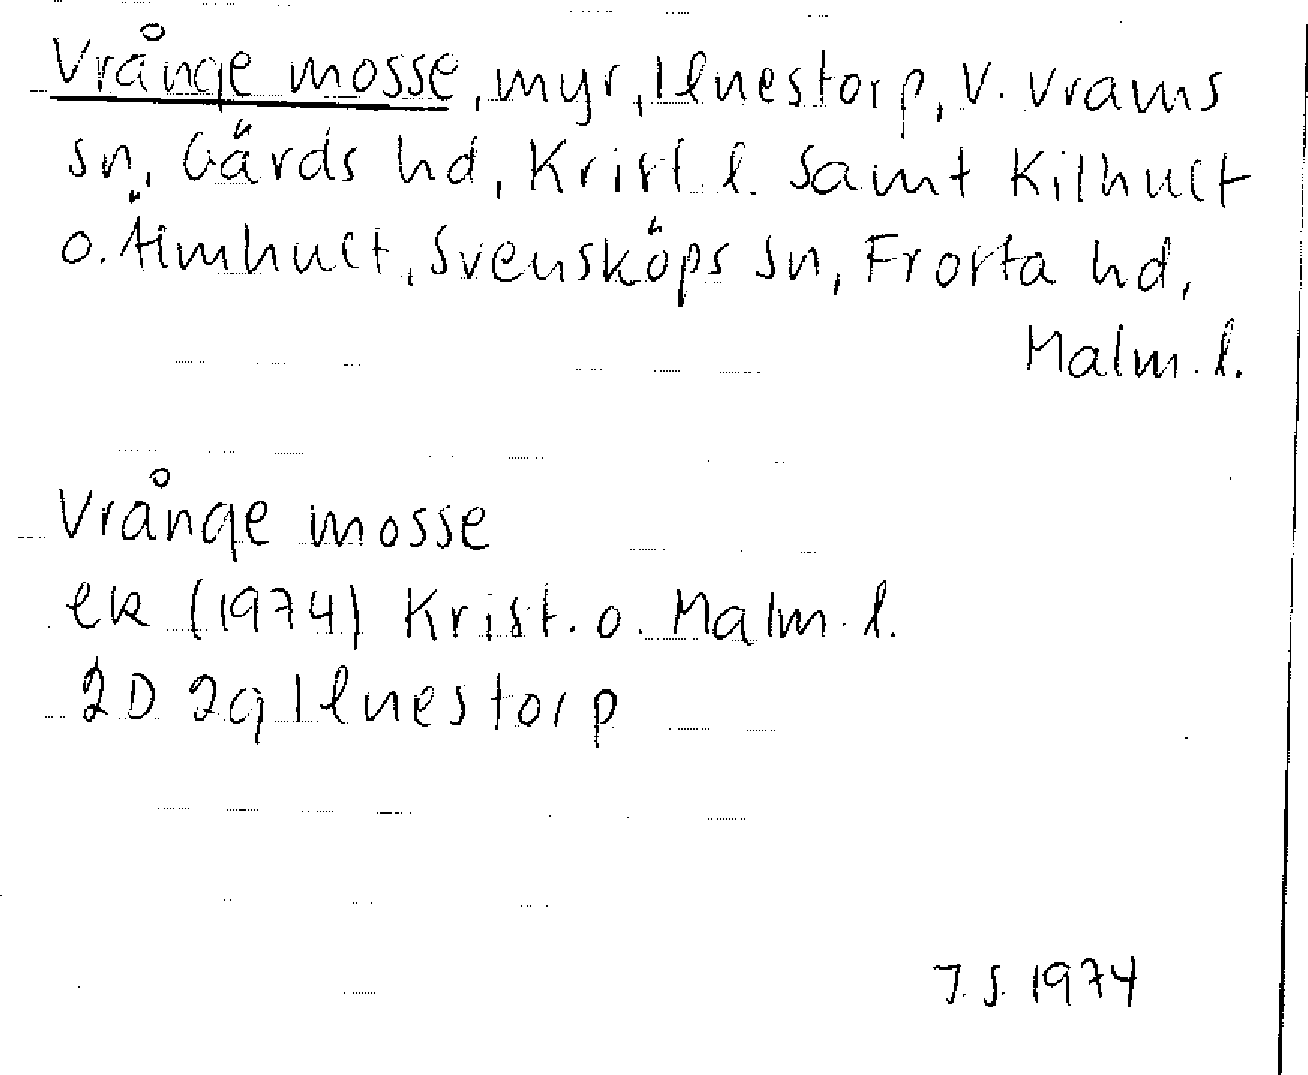 Vrånge mosse, myr, Ilnestorp, V. Vrams
sn, Gärds hd, Krist. l. samt Kilhult
o. Ämhult, Svensköps sn, Frosta hd,
Malm. l.
Vrånge mosse
ek (1974) Krist. o. Malm. l.
2D 2g Ilnestorp
J.S. 1974